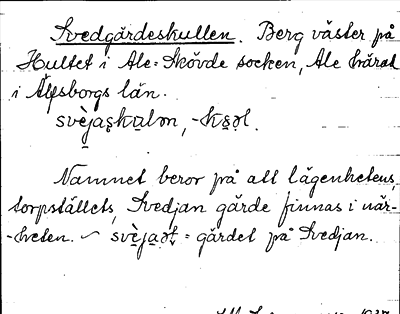 Svedgärdeskullen. Berg väster på
Hultet i Ale-Skövde socken, Ale härad
i Älfsborgs län.
Namnet beror på att lägenhetens,
torpställets, Svedjan gärde finnas i när-
-heten. = gärdet på Svedjan.